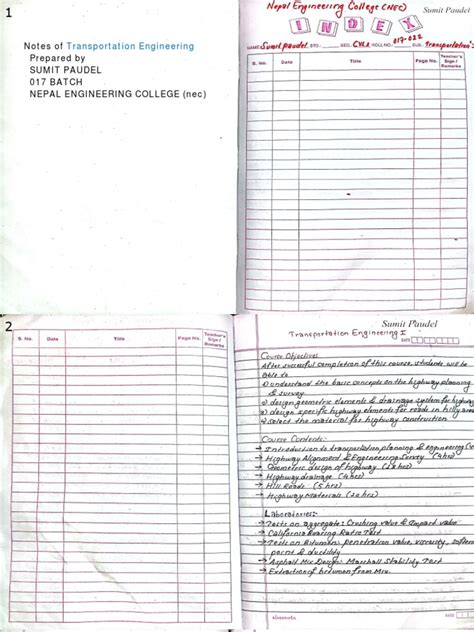 1
Notes of Transportation Engineering
Prepared by
SUMIT PAUDEL
017 BATCH
NEPAL ENGINEERING COLLEGE (nec)
Nepal Engineering College (NEC)
Sumit Paudel
INDEX
NAME: Sumit paudel STD.: SEC. Civil ROLL NO. 017-022 SUB. Transportation
S. No. Date Title Page No. Teacher's Sign / Remarks
2
S. No. Date Title Page No. Teacher's Sign / Remarks
Sumit Paudel
Transportation Engineering I
DATE
Course Objectives
After successful completion of this course, students will be
able to
1) understand the basic concepts on the highway planning
& survey
2) design geometric elements & drainage system for highway
3) design specific highway elements for roads in hilly area
4) select the material for highway construction
Course Contents:
→ Introduction to transportation planning & engineering
→ Highway Alignment & Engineering Survey (4 hrs)
→ Geometric design of highway
→ Highway drainage (4 hrs)
→ Hill Roads (5 hrs)
→ Highway Materials
Laboratories:
→ Tests on aggregate: Crushing value & Impact value
→ California Bearing Ratio Test
→ Tests on Bitumen: penetration value, viscosity, soften
point & ductility
→ Asphalt Mix Design: Marshall Stability Test
→ Extraction of bitumen from Mix.